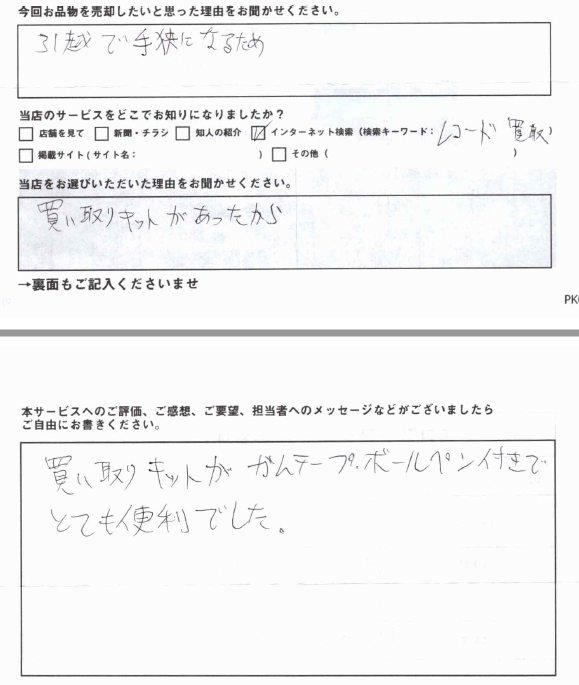 今回お品物を売却したいと思った理由をお聞かせください。
引越で手狭になるため
当店のサービスをどこでお知りになりましたか？
□ 店舗を見て □ 新聞・チラシ □ 知人の紹介 ☑ インターネット検索（検索キーワード：レコード 買取）
□ 掲載サイト（サイト名： ） □ その他（ ）
当店をお選びいただいた理由をお聞かせください。
買い取りキットがあったから
→裏面もご記入くださいませ
PK
本サービスへのご評価、ご感想、ご要望、担当者へのメッセージなどがございましたら
ご自由にお書きください。
買い取りキットが がんテープ、ボールペン付きで
とても便利でした。